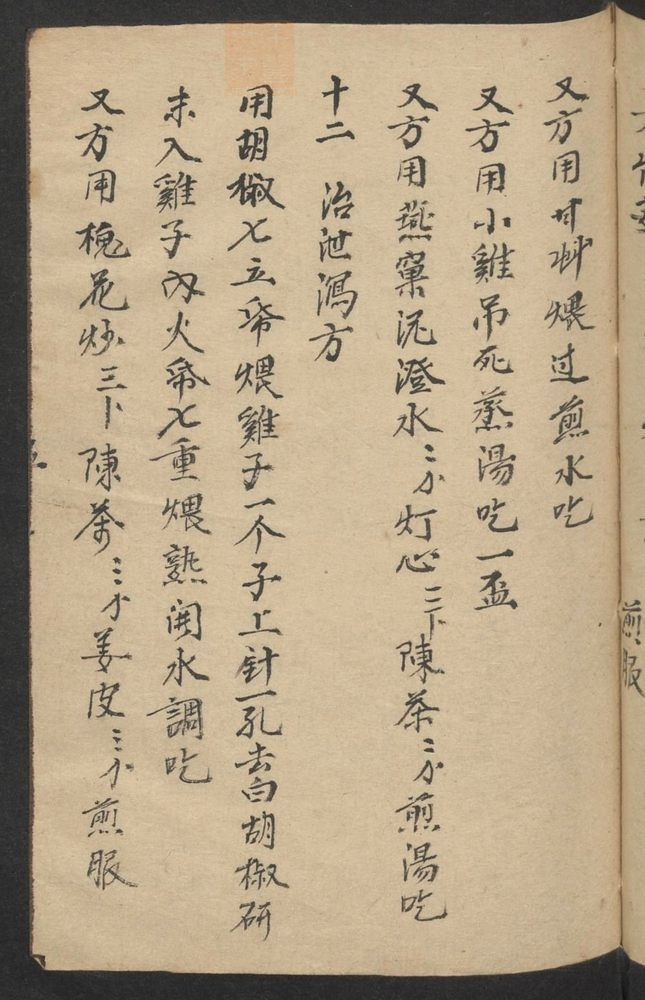 又方用甘草煨过煎水吃
又方用小雞吊死蒸湯吃一盃
又方用燕窠泥澄水三分灯心三卜陳茶三分煎湯吃
十二 治泄瀉方
用胡椒七立帋煨雞子一个子上針一孔去白胡椒研
末入雞子內火帋七重煨熟開水調吃
又方用槐花炒三卜陳茶三分姜皮三分煎服
煎服